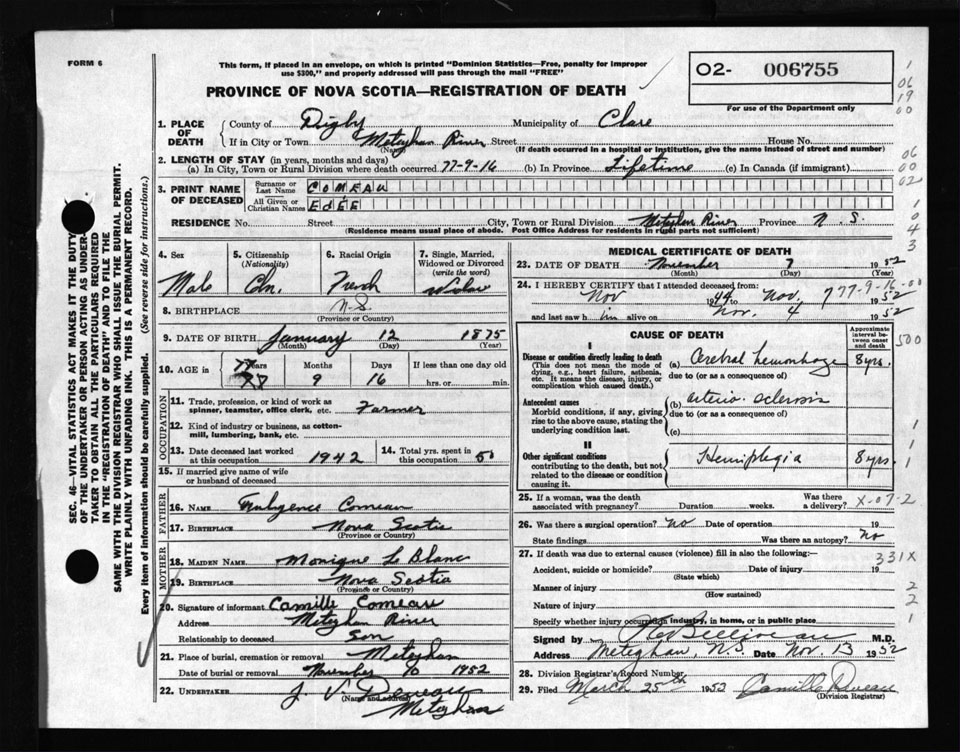 FORM 6
This form, if placed in an envelope, on which is printed "Dominion Statistics—Free, penalty for improper
use $300," and properly addressed will pass through the mail "FREE"
O2- 006755
For use of the Department only
PROVINCE OF NOVA SCOTIA—REGISTRATION OF DEATH
1. PLACE OF DEATH
County of Digby Municipality of Clare
If in City or Town Meteghan River Street House No.
(Name) (If death occurred in a hospital or institution, give the name instead of street and number)
2. LENGTH OF STAY (in years, months and days)
(a) In City, Town or Rural Division where death occurred 77-9-16 (b) In Province Lifetime (c) In Canada (if immigrant)
3. PRINT NAME OF DECEASED
Surname or Last Name COMEAU
All Given or Christian Names EDEE
RESIDENCE No. Street City, Town or Rural Division Meteghan River Province N.S.
(Residence means usual place of abode. Post Office Address for residents in rural parts not sufficient)
4. Sex
Male
5. Citizenship (Nationality)
Cdn.
6. Racial Origin
French
7. Single, Married, Widowed or Divorced (write the word)
Widow
8. BIRTHPLACE N-S
(Province or Country)
9. DATE OF BIRTH January 12 1875
(Month) (Day) (Year)
10. AGE in
Years Months Days If less than one day old
77 9 16 hrs. or min.
OCCUPATION
11. Trade, profession, or kind of work as spinner, teamster, office clerk, etc. Farmer
12. Kind of industry or business, as cotton-mill, lumbering, bank, etc.
13. Date deceased last worked at this occupation 1942
14. Total yrs. spent in this occupation 50
15. If married give name of wife or husband of deceased
FATHER
16. NAME Comeau
17. BIRTHPLACE Nova Scotia
(Province or Country)
MOTHER
18. MAIDEN NAME Monique Le Blanc
19. BIRTHPLACE Nova Scotia
(Province or Country)
20. Signature of informant Camille Comeau
Address Meteghan River
Relationship to deceased Son
21. Place of burial, cremation or removal Meteghan
Date of burial or removal November 10 1952
22. UNDERTAKER J. V. Deveau
(Name and address) Meteghan
MEDICAL CERTIFICATE OF DEATH
23. DATE OF DEATH November 7 1952
(Month) (Day) (Year)
24. I HEREBY CERTIFY that I attended deceased from:
Nov 1944 to Nov. 7 1952
77-9-16-00
and last saw h im alive on Nov. 4 1952
CAUSE OF DEATH
Approximate interval between onset and death
I
Disease or condition directly leading to death
(This does not mean the mode of dying, e.g., heart failure, asthenia, etc. It means the disease, injury, or complication which caused death.)
(a) Cerebral hemorrhage 8 yrs.
due to (or as a consequence of)
Antecedent causes
Morbid conditions, if any, giving rise to the above cause, stating the underlying condition last.
(b) arterio sclerosis
due to (or as a consequence of)
(c)
II
Other significant conditions
contributing to the death, but not related to the disease or condition causing it.
Hemiplegia 8 yrs.
25. If a woman, was the death associated with pregnancy? Duration weeks. Was there a delivery? X-07-2
26. Was there a surgical operation? No Date of operation 19
State findings Was there an autopsy? No
27. If death was due to external causes (violence) fill in also the following:—
331X
Accident, suicide or homicide? Date of injury 19
(State which)
Manner of injury
(How sustained)
Nature of injury
Specify whether injury occurred in industry, in home, or in public place
Signed by M.D.
Address Meteghan, N.S. Date Nov. 13 1952
28. Division Registrar's Record Number
29. Filed March 25th 1952 Camille Deveau
(Division Registrar)
SEC. 46—VITAL STATISTICS ACT MAKES IT THE DUTY
OF THE UNDERTAKER OR PERSON ACTING AS UNDER-
TAKER TO OBTAIN ALL THE PARTICULARS REQUIRED
IN THE "REGISTRATION OF DEATH" AND TO FILE THE
SAME WITH THE DIVISION REGISTRAR WHO SHALL ISSUE THE BURIAL PERMIT.
WRITE PLAINLY WITH UNFADING INK. THIS IS A PERMANENT RECORD.
Every item of information should be carefully supplied. (See reverse side for instructions.)
1
06
19
00
06
00
02
1
0
4
3
500
1
1
1
2
2
1